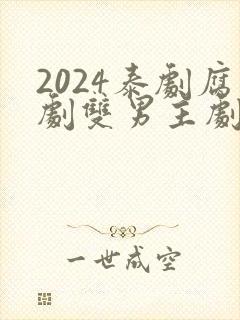 2024泰劇腐
劇雙男主劇
一世成空